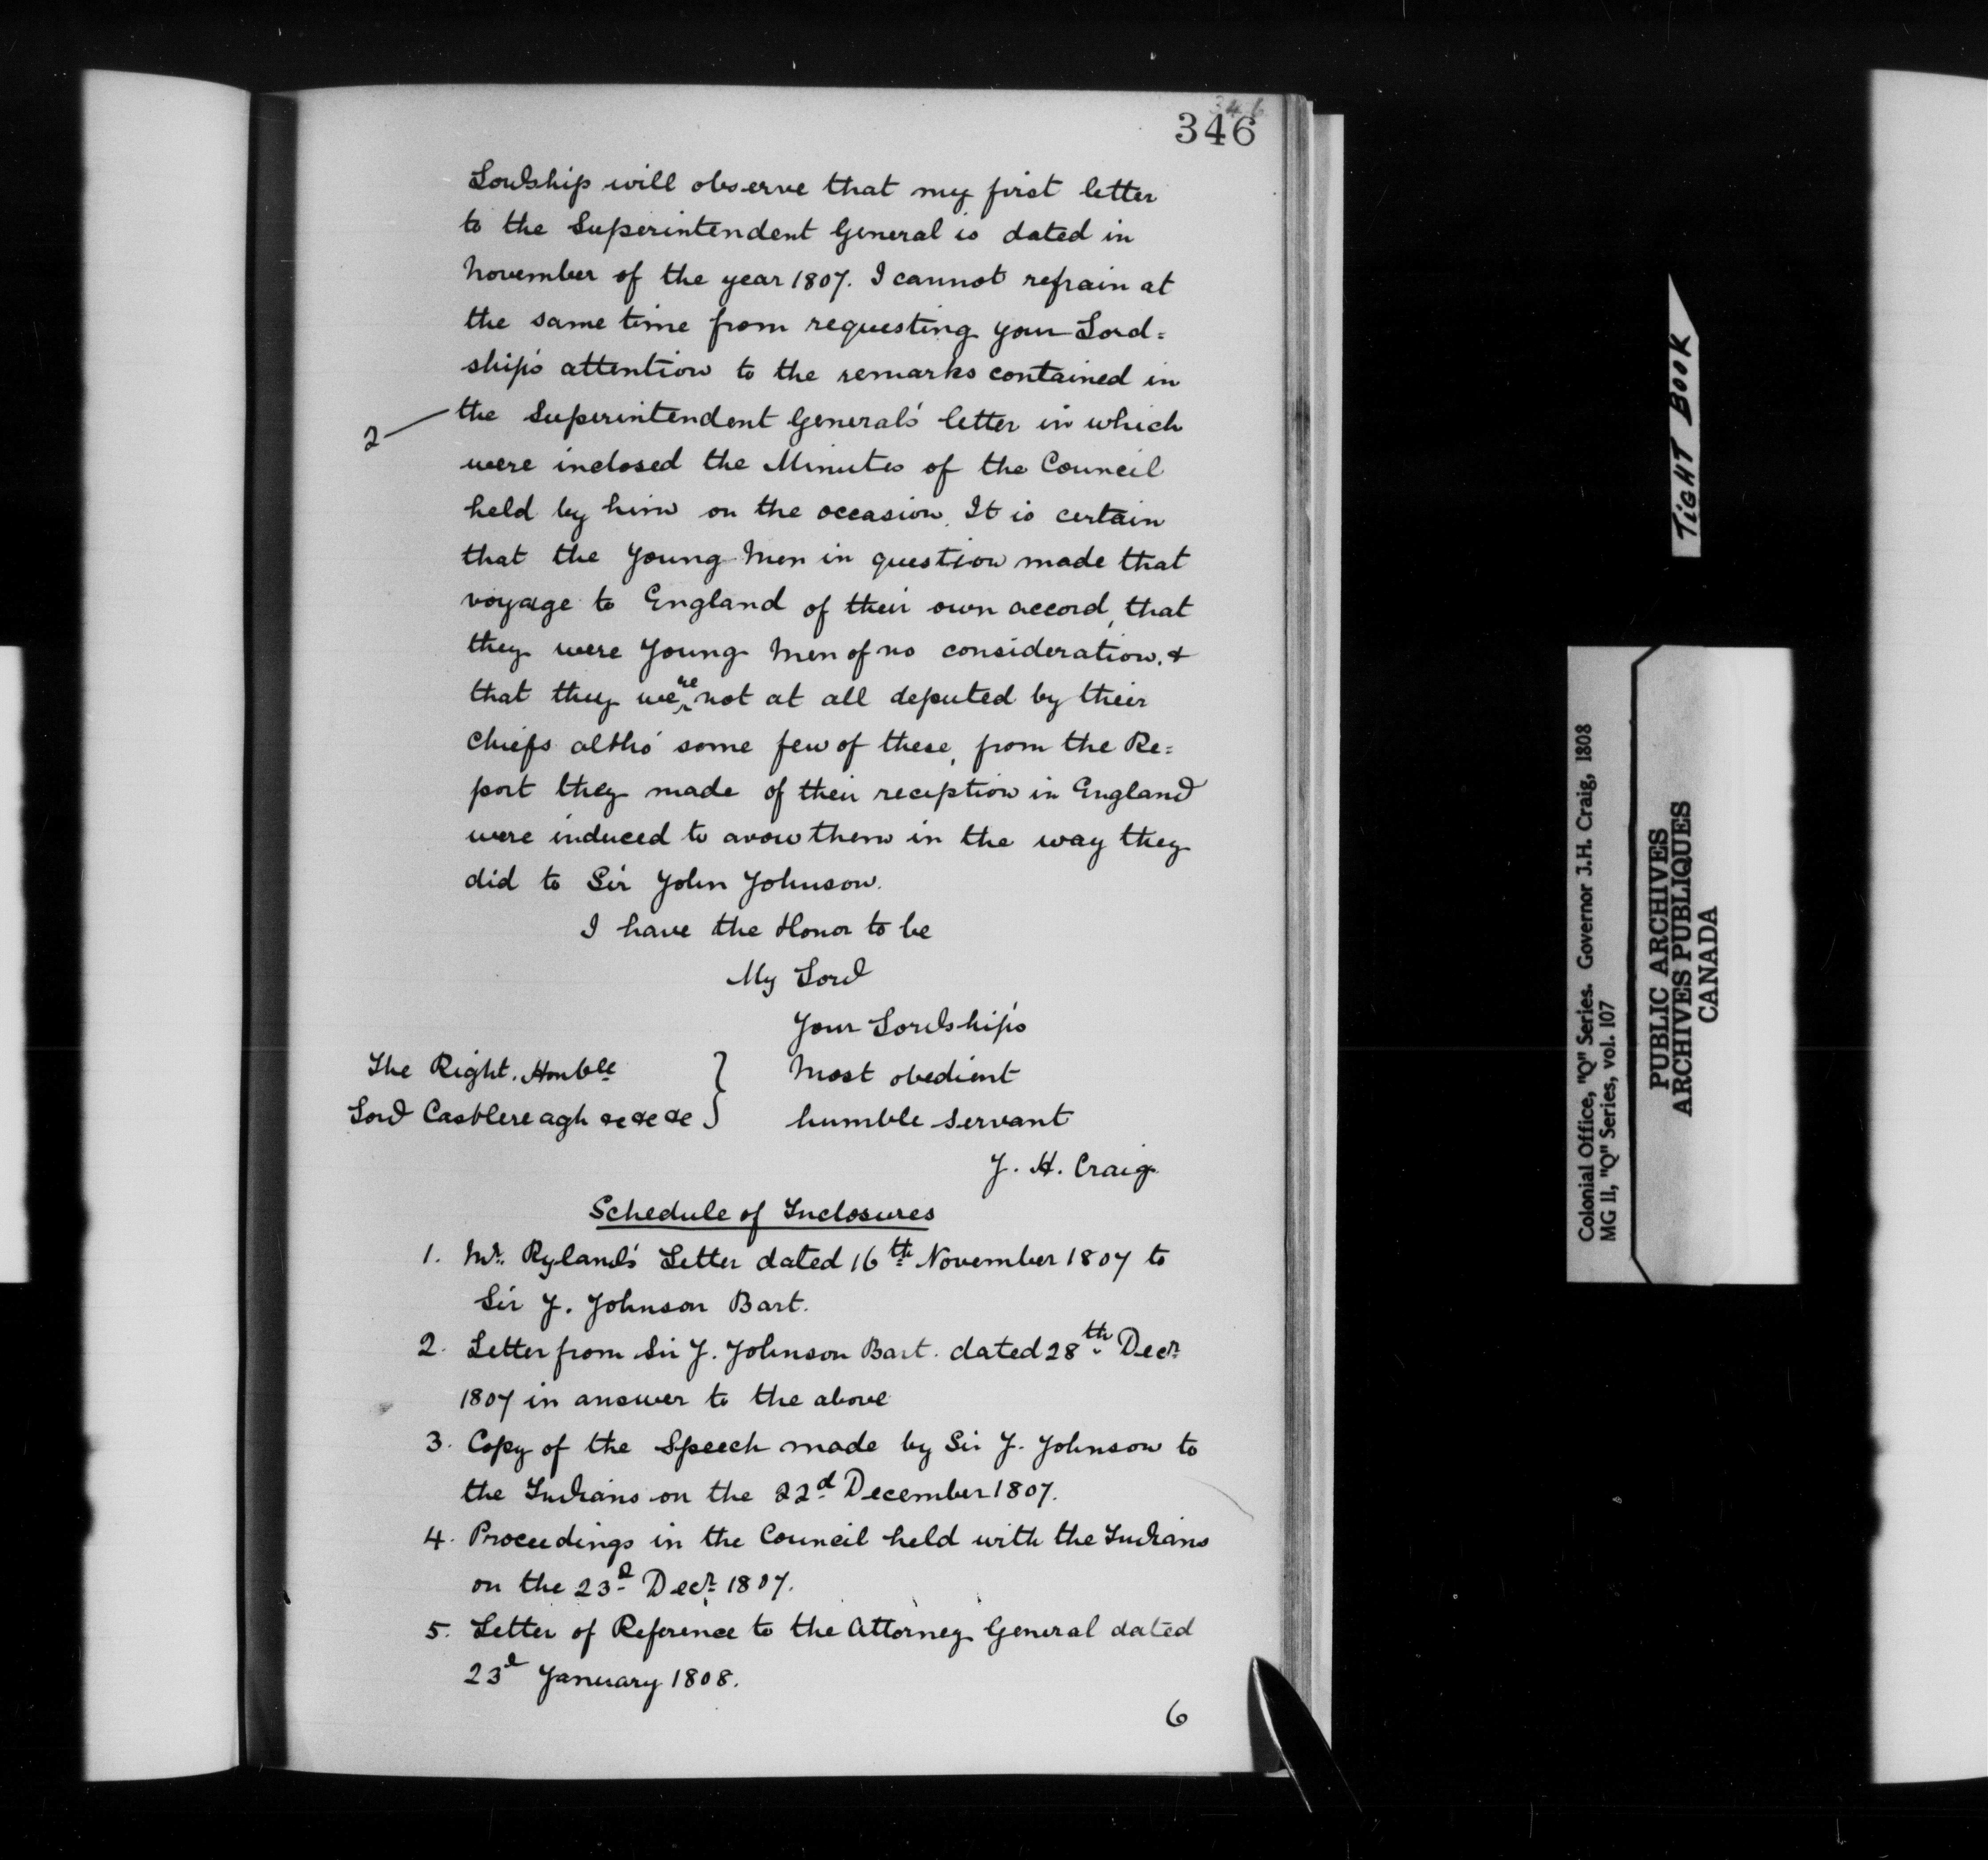 346
346
Lordship will observe that my first letter
to the Superintendent General is dated in
November of the year 1807. I cannot refrain at
the same time from requesting your Lord=
ship's attention to the remarks contained in
2
the Superintendent General's letter in which
were inclosed the Minutes of the Council
held by him on the occasion. It is certain
that the Young Men in question made that
voyage to England of their own accord, that
they were Young Men of no consideration, &
that they were not at all deputed by their
Chiefs altho' some few of these, from the Re=
port they made of their reception in England
were induced to avow them in the way they
did to Sir John Johnson.
I have the Honor to be
My Lord
Your Lordship's
The Right. Honble } Most obedient
Lord Castlereagh &c &c &c } humble servant
J. H. Craig
Schedule of Inclosures
1. Mr. Ryland's Letter dated 16th November 1807 to
Sir J. Johnson Bart.
2. Letter from Sir J. Johnson Bart. dated 28th Decr.
1807 in answer to the above
3. Copy of the Speech made by Sir J. Johnson to
the Indians on the 22d December 1807.
4. Proceedings in the Council held with the Indians
on the 23d Decr. 1807.
5. Letter of Reference to the Attorney General dated
23d January 1808.
6
TiGHT BOOK
Colonial Office, "Q" Series. Governor J.H. Craig, 1808
MG 11, "Q" Series, vol. 107
PUBLIC ARCHIVES
ARCHIVES PUBLIQUES
CANADA